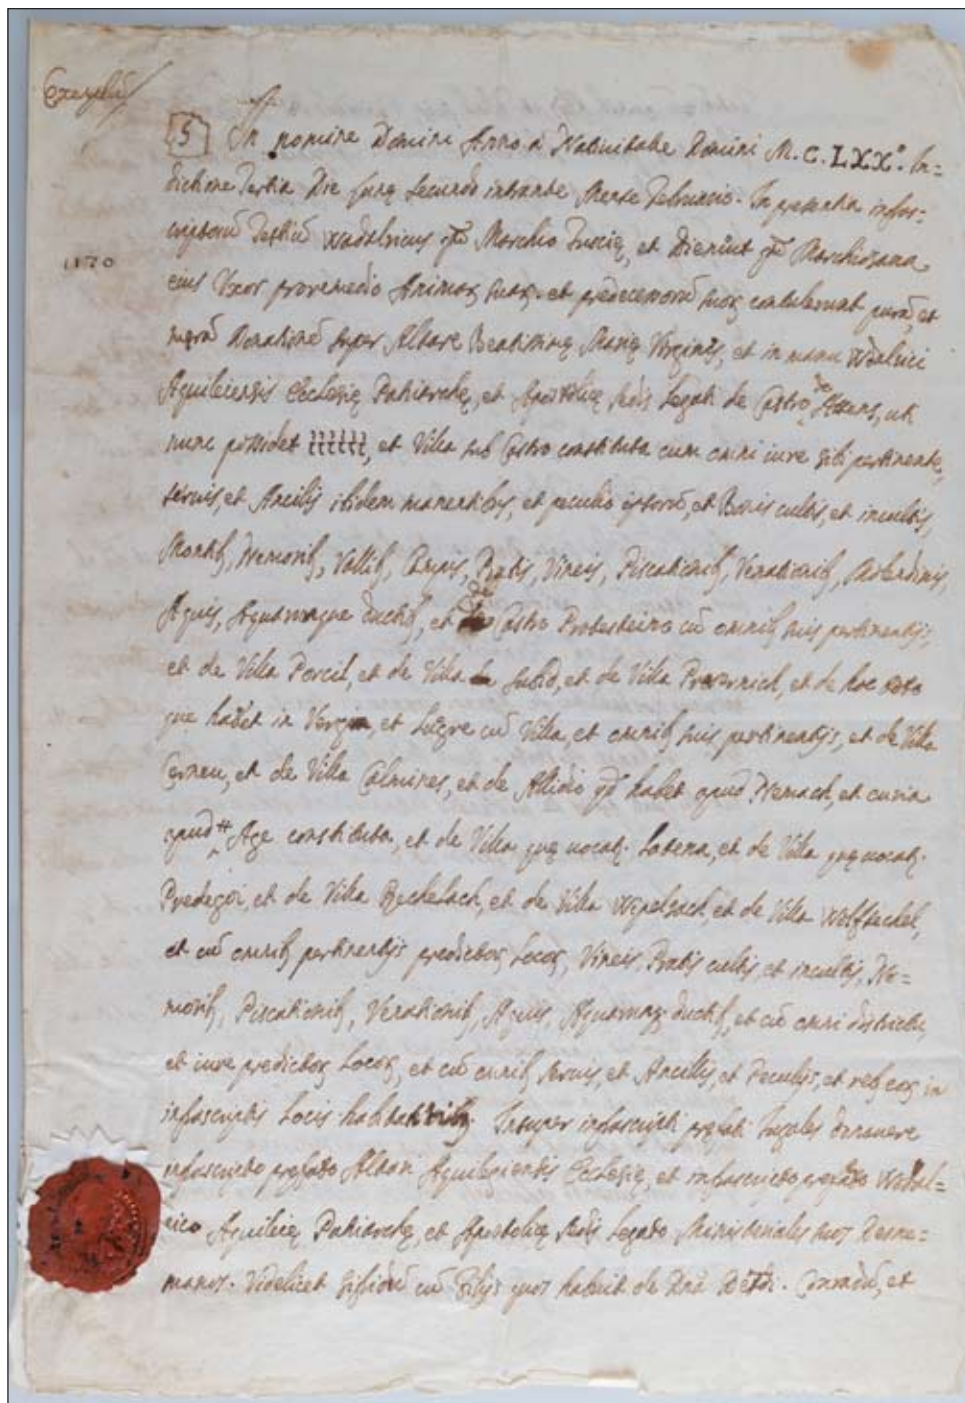 5 In nomine Domini Anno à Natiuitate Domini M.C.LXX.º In=
dictione Tertia Die secundo intrante Mense Februario. In presentia infra=
Testiũ Wodolricus Marchio Tuscię, et Diemut Marchionana
1170
eius Vxor pro remedio Animaꝝ suaꝝ. et predecessorũ suoꝝ contulerunt purã, et
merã Donationẽ super Altare Beatissimę Marię Virginis, et in manu Wdalrici
Aquileiensis Ecclesię Patriarchę, et Apostolicę Sedis Legati de Castro de Attens, ut
nunc possidet, et Villa sub Castro constituta cum omni iure sibi pertinente,
seruis, et Ancilis ibidem manentibꝫ, et peculio ipsorũ, et Bonis cultis, et incultis,
Montibꝫ, Nemoribꝫ, Vallibꝫ, Campis, Pratis, Vineis, Piscationibꝫ, Venationibꝫ,
Aquis, Aquarumque ductibꝫ, et de Castro Protesteino cũ omnibꝫ suis pertinentijs,
et de Villa Porcil, et de Villa Subid, et de Villa et de hoc
habet in et Lũgre cũ Villa, et omnibꝫ suis pertinentijs, et de Villa
Cerneu, et de Villa Colmines, et de Allodio habet apud Nemach, et curia
apud Age constituta, et de Villa quę uocatꝫ. Latena, et de Villa quę uocatꝫ.
Predegoi, et de Villa Bechelach, et de Villa Wipelsach, et de Villa
et cũ omnibꝫ pertinentijs predictoꝝ Locoꝝ, Vineis, Pratis cultis, et incultis, Ne=
moribꝫ, Piscationibꝫ, Venationibꝫ, Aquis, Aquarumqꝫ ductibꝫ, et cũ omni districtu,
et iure predictoꝝ Locoꝝ, et cũ omnibꝫ seruis, et Ancillis, et Peculijs, et rebꝫ eoꝝ in
infrascriptis Locis habitantibꝫ. Insuper infrascripti prefati Iugales donauere
infrascripto prefato Altari Aquilegiensis Ecclesię, et infrascripto prefato Wodal=
rico Aquileię Patriarchę, et Apostolicę Sedis Legato Ministeriales suos Desne=
manos. Videlicet cũ Filijs quos habuit de Dnã. Conradũ, et